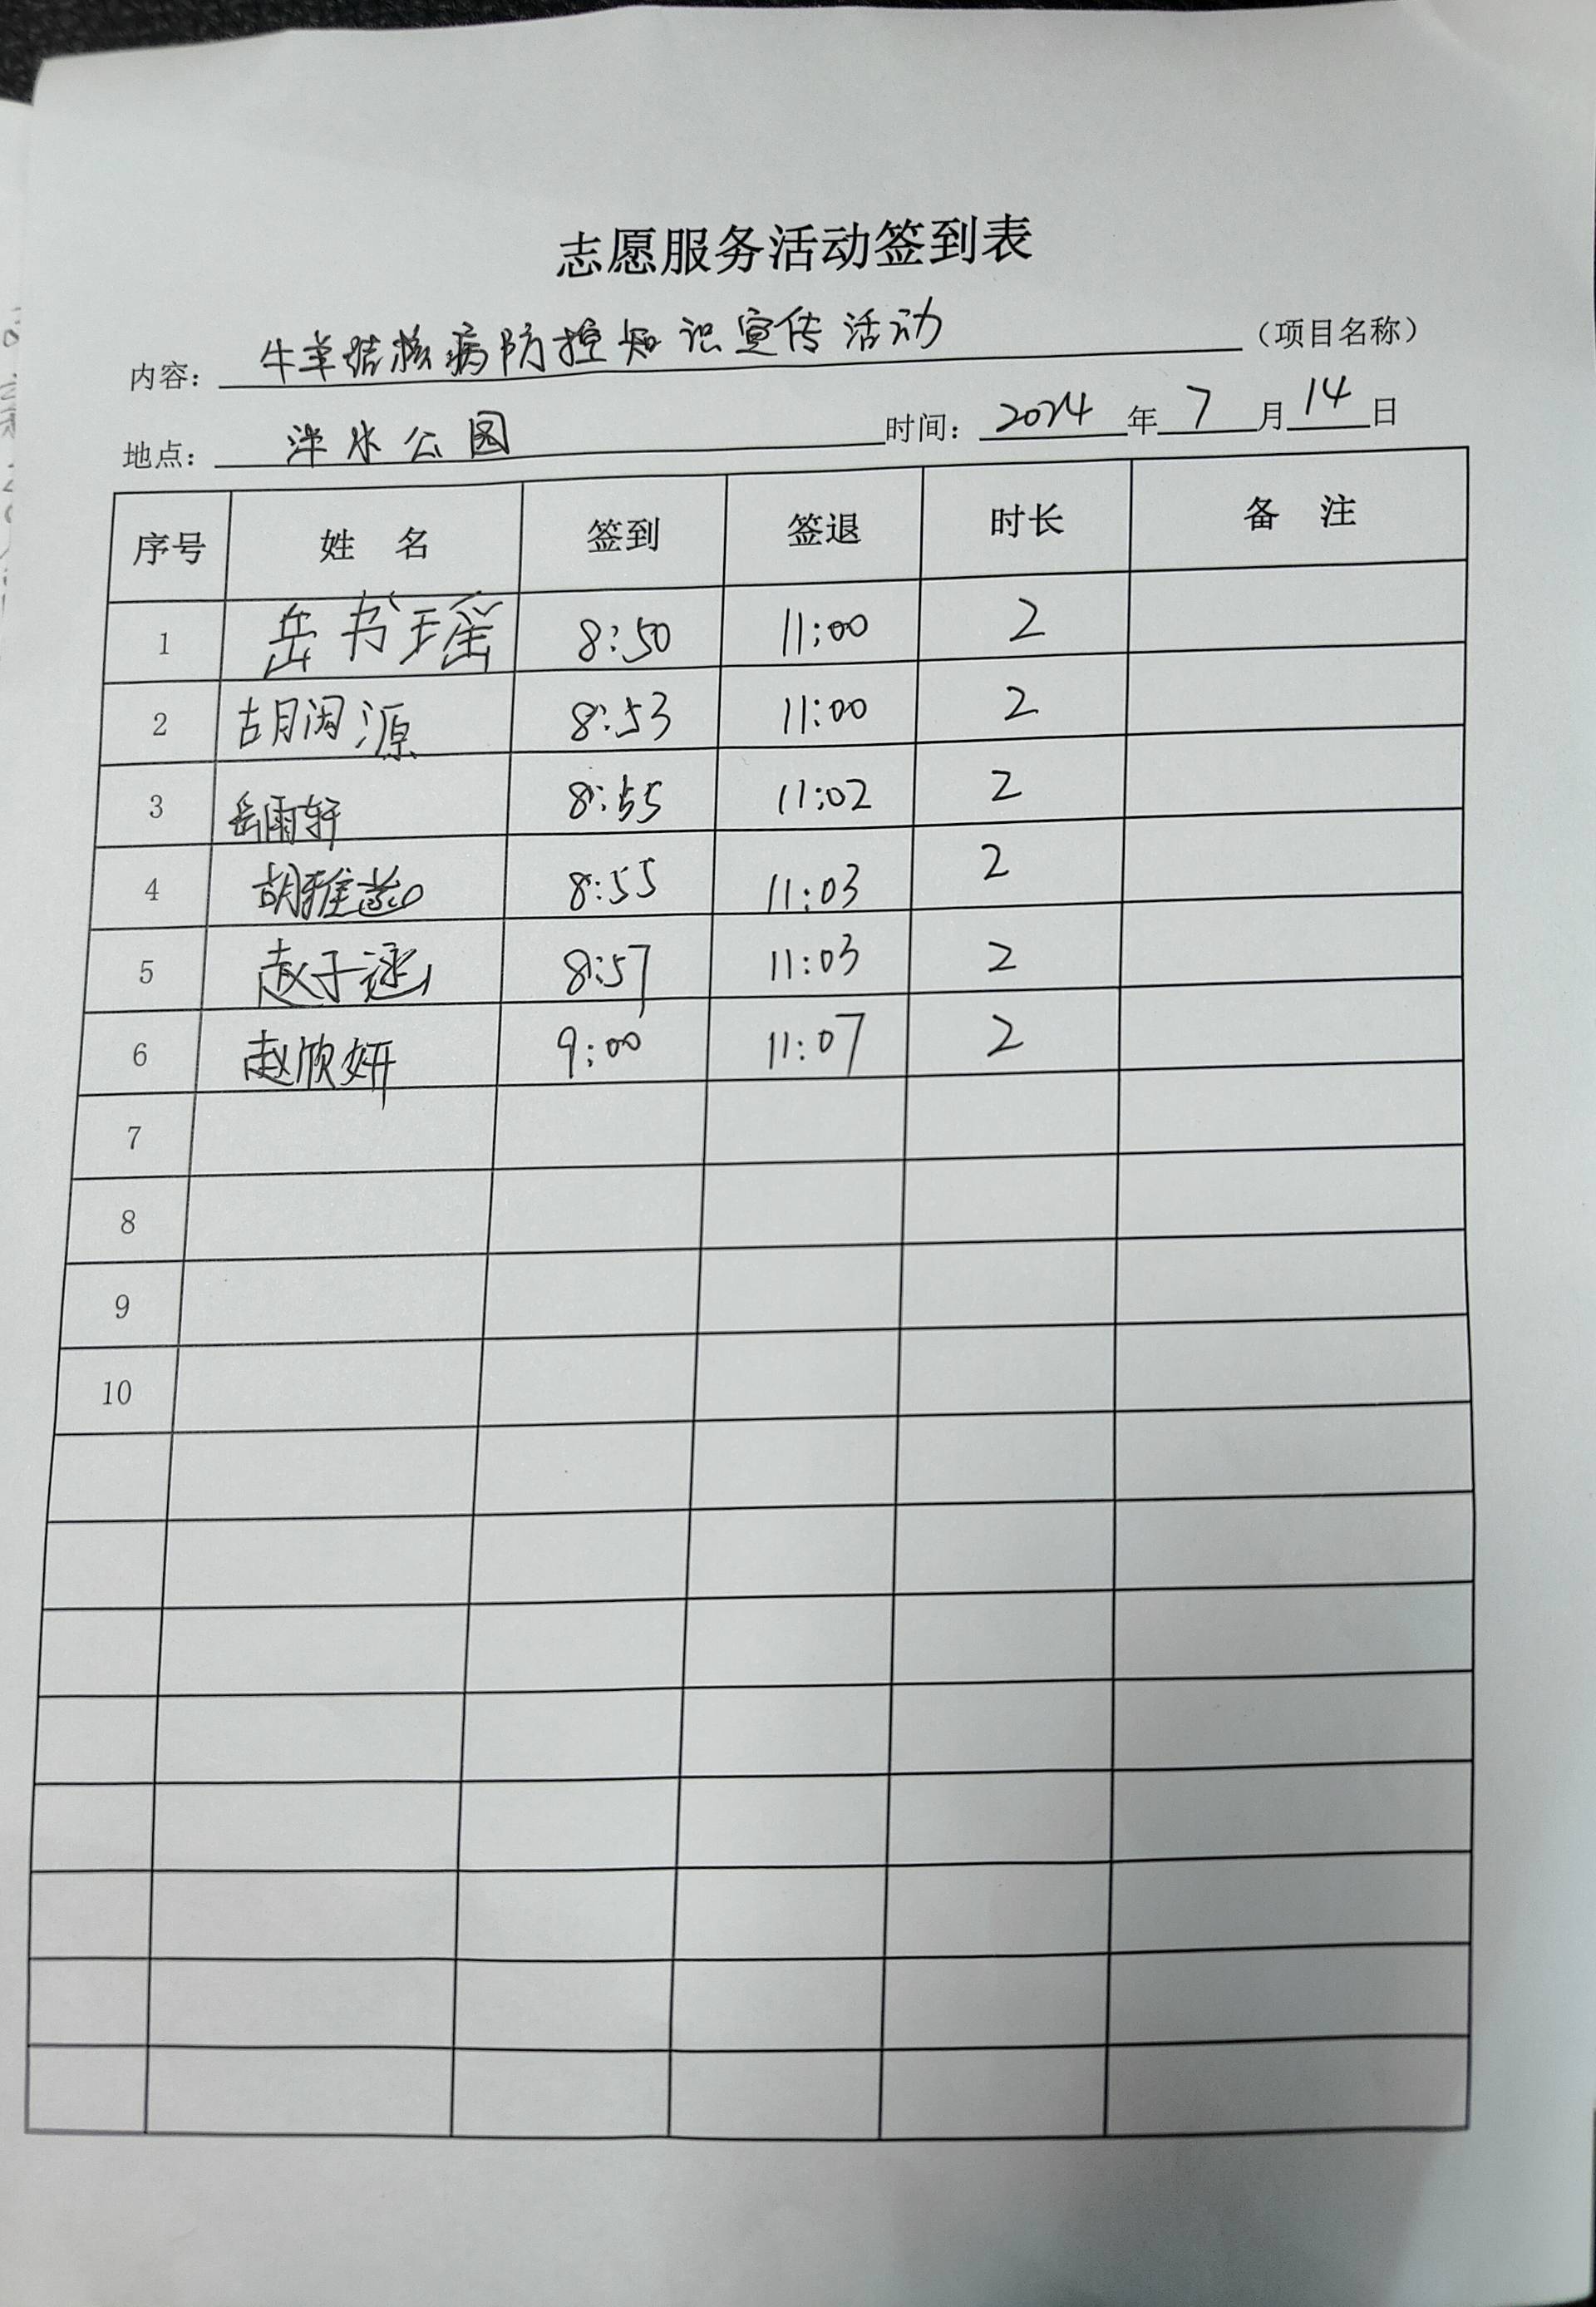 志愿服务活动签到表
内容： 牛羊结核病防控知识宣传活动 （项目名称）
地点： 洋水公园 时间： 2024 年 7 月 14 日
序号 姓 名 签到 签退 时长 备 注
1 岳书瑶 8:50 11:00 2
2 胡润源 8:53 11:00 2
3 岳雨轩 8:55 11:02 2
4 胡雅 8:55 11:03 2
5 赵子涵 8:57 11:03 2
6 赵欣妍 9:00 11:07 2
7
8
9
10